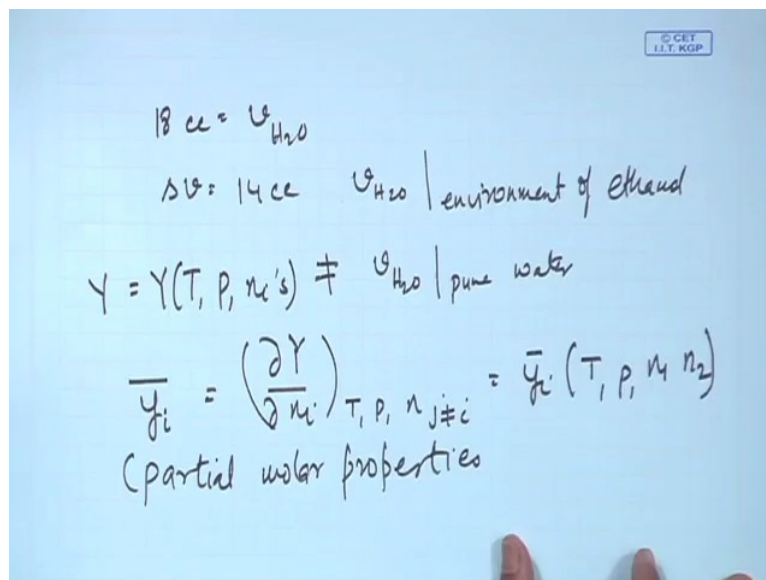 © CET
I.I.T. KGP
18 cc = v_H₂O
Δv = 14 cc v_H₂O | environment of ethanol
Y = Y(T, P, nᵢ's) ≠ v_H₂O | pure water
ȳᵢ = (∂Y/∂nᵢ)_T, P, n_j≠i = ȳᵢ (T, P, n₁ n₂)
(partial molar properties